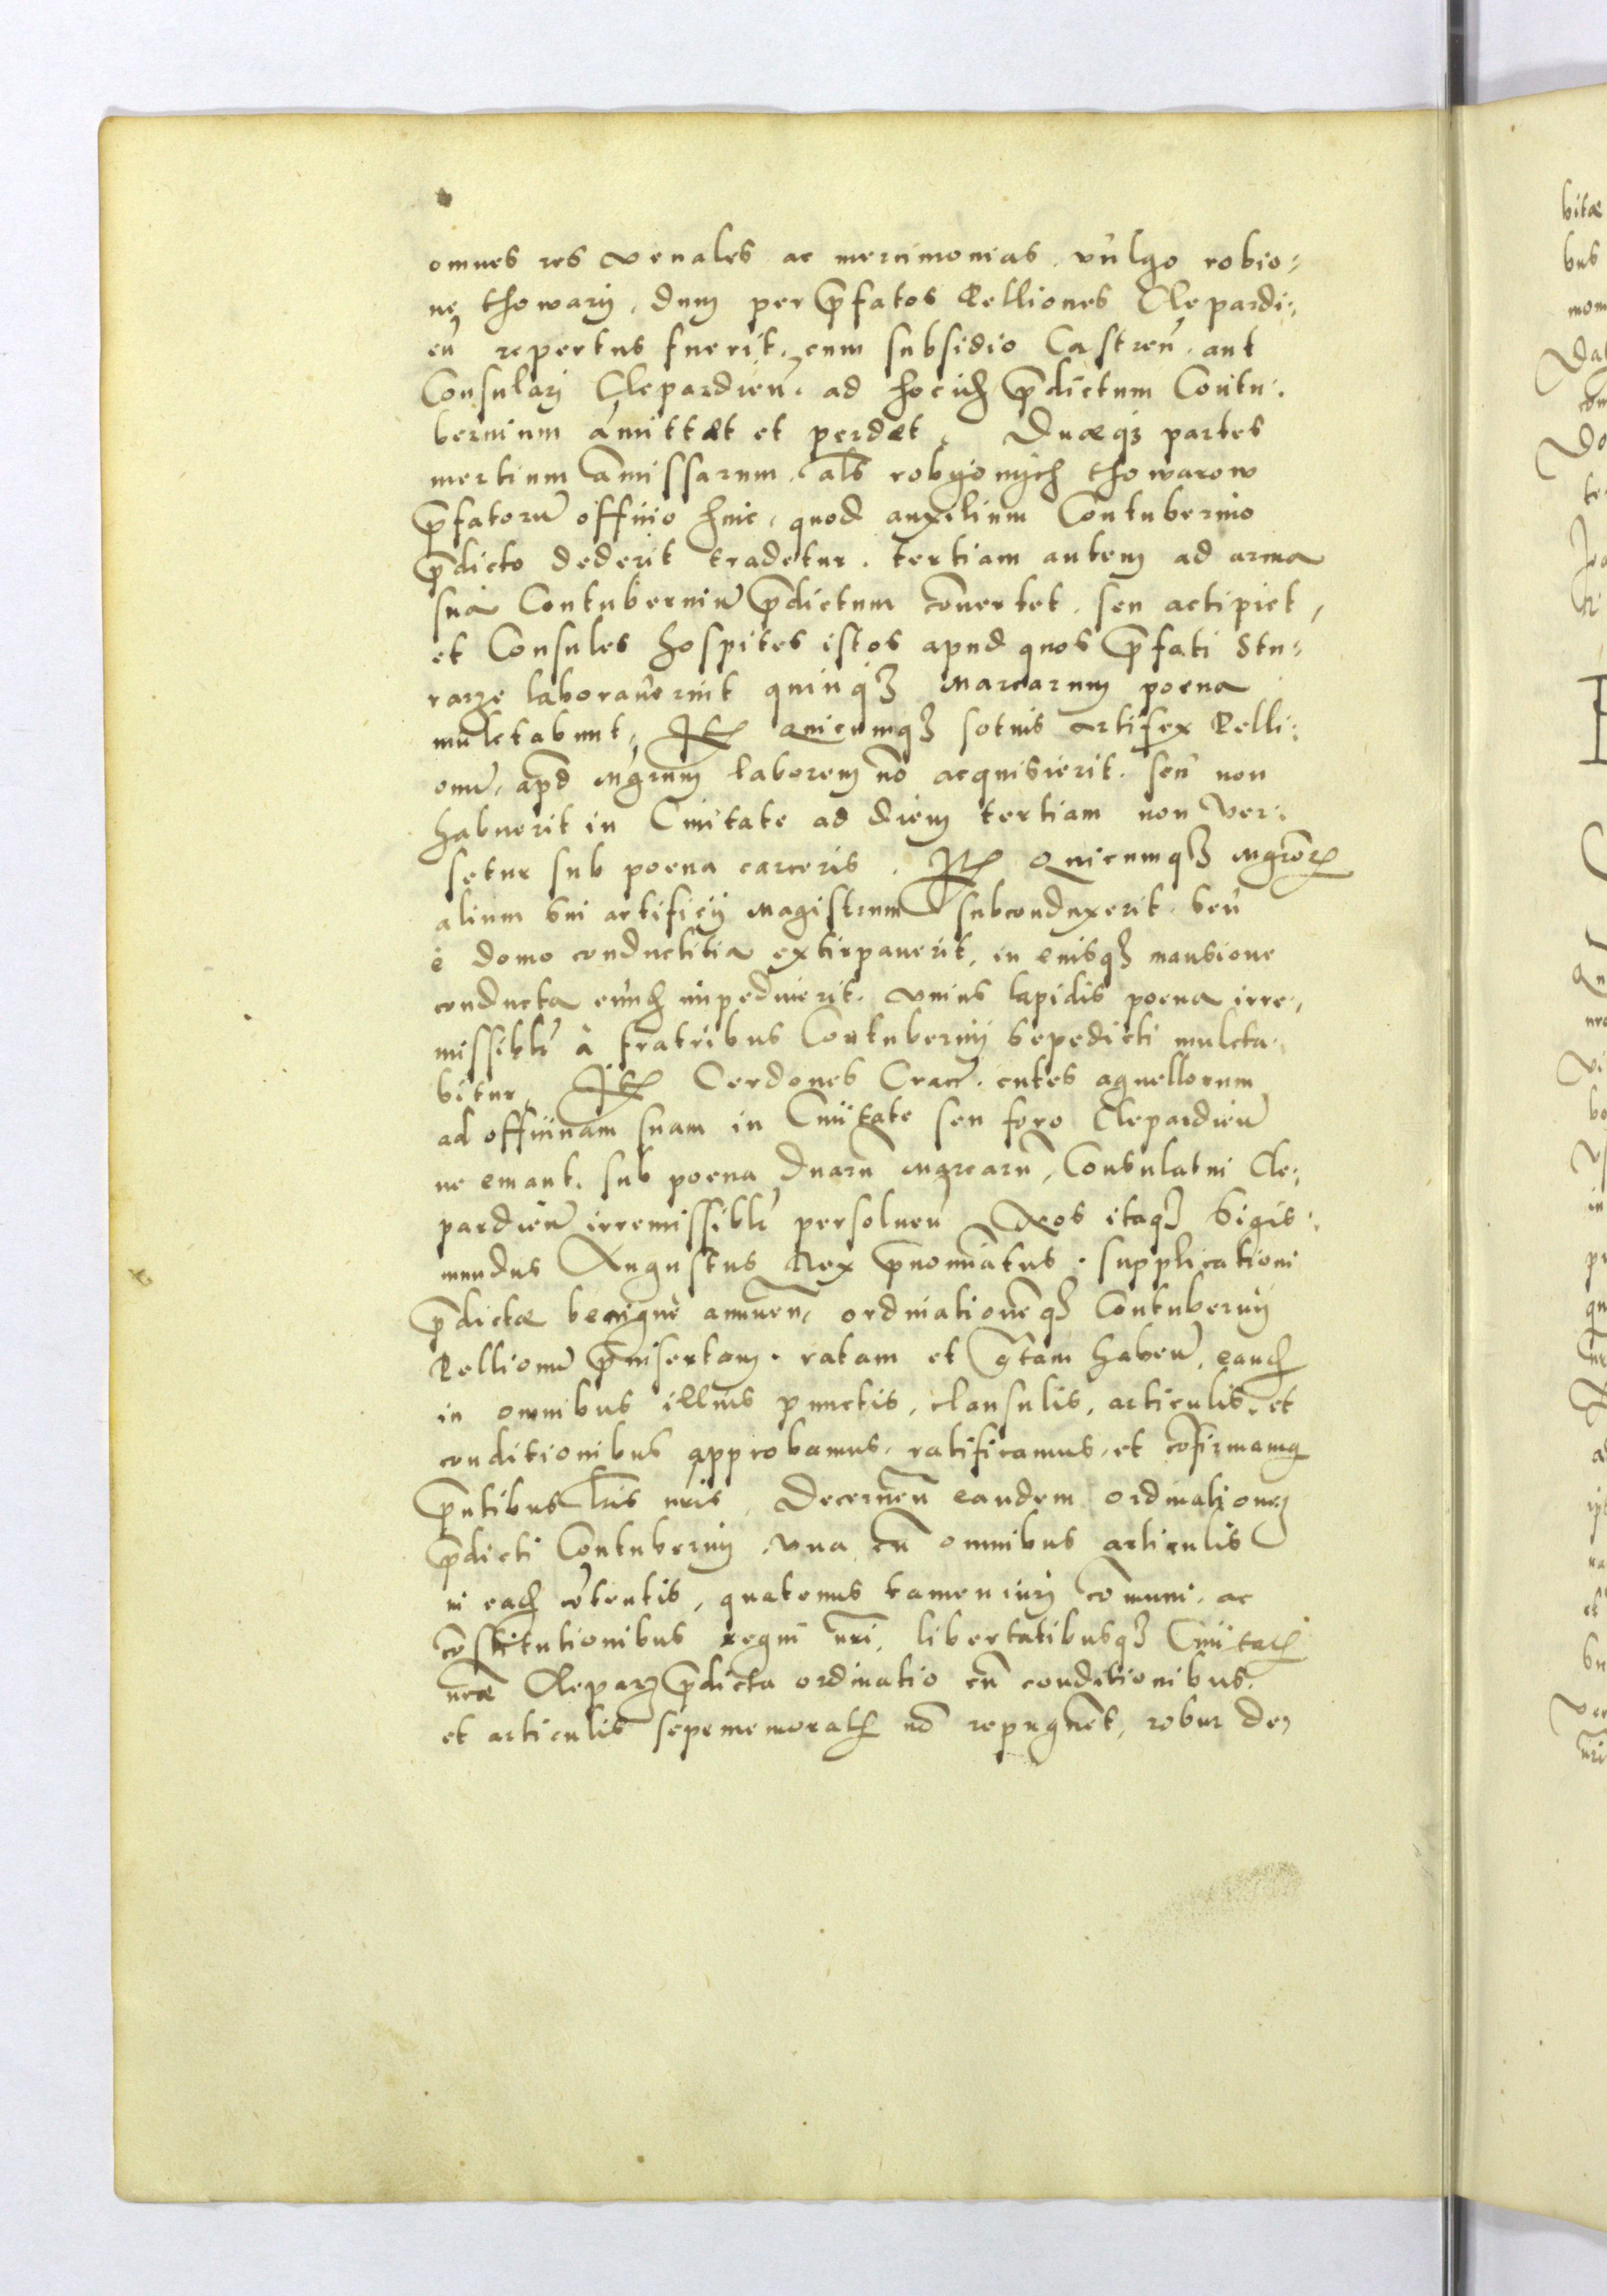 omnes res venales ac mercimonias vulgo robio=
ne thowary, dum per p̄fatos Pelliones Clepardi=
eñ repertus fuerit, cum subsidio Castreñ aut
Consulari Clepardieñ. ad hoc id p̄dictum Contu=
bernium amittæt et perdæt. Duæq3 partes
mertium amissarum. als robyonych thowarow
p̄fatorū officio huic, quod auxilium Contubernio
p̄dicto dederit tradetur. tertiam autem ad arma
sua Contuberniū p̄dictum cōuertet, seu accipiet,
et Consules hospites istos apud quos p̄fati Stu=
rarze laborauerint quinq3 Marcarum poena
mulctabunt, Itē Quicumq3 sotius artifex Pelli=
onū, apd Mgrum laborem nō acquisierit. seu non
habuerit in Ciuitate ad diem tertiam non Ver=
setur sub poena carceris. Itē Quicumq3 Mgrorꝝ
alium sui artificij Magistrum subconduxerit. seu
e domo conductitia extirpauerit, in eiusq3 mansione
conducta eund impedinerit. vnius lapidis poena irre=
missiblr à fratribus Contubernij sepedicti mulcta=
bitur, Itē Cerdones Cracō. cutes agnellorum
ad officinam suam in Ciuitate seu foro Clepardieñ
ne emant. sub poena duarū Marcarū, Consulatui Cle=
pardieñ irremissiblr persolueñ Nos itaq3 Sigis=
mundus Augustus Rex p̄nominatus. supplicationi
p̄dictæ benignè annueñ, ordinationeq3 Contubernij
Pellionū p̄insertam. ratam et gratam habeñ, eand
in omnibus illius punctis, clausulis, articulis, et
conditionibus approbamus, ratificamus, et cōfirmamq
p̄ntibus lris nris, Decerneñ eandem ordinationem
p̄dicti Contubernij vna cū omnibus articulis
in ead cōtentis, quatenus tamen iuri cōmuni, ac
cōstitutionibus regni nri, libertatibusq3 Ciuitatꝭ
nræ Clepar p̄dicta ordinatio cū conditionibus,
et articulis sepememoratꝭ nō repugnēt, robur de=